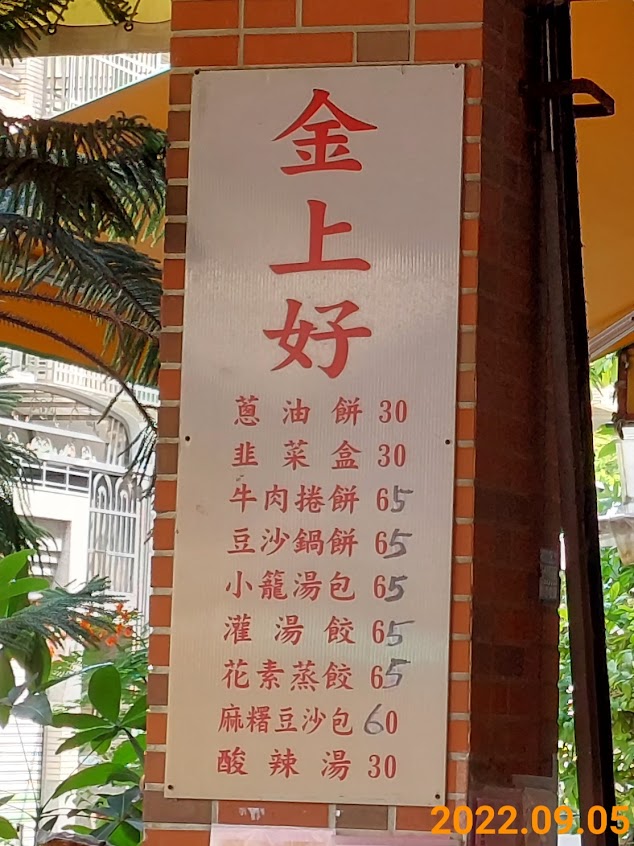 金上好
蔥油餅 30
韭菜盒 30
牛肉捲餅 65
豆沙鍋餅 65
小籠湯包 65
灌湯餃 65
花素蒸餃 65
麻糬豆沙包 60
酸辣湯 30
2022.09.05